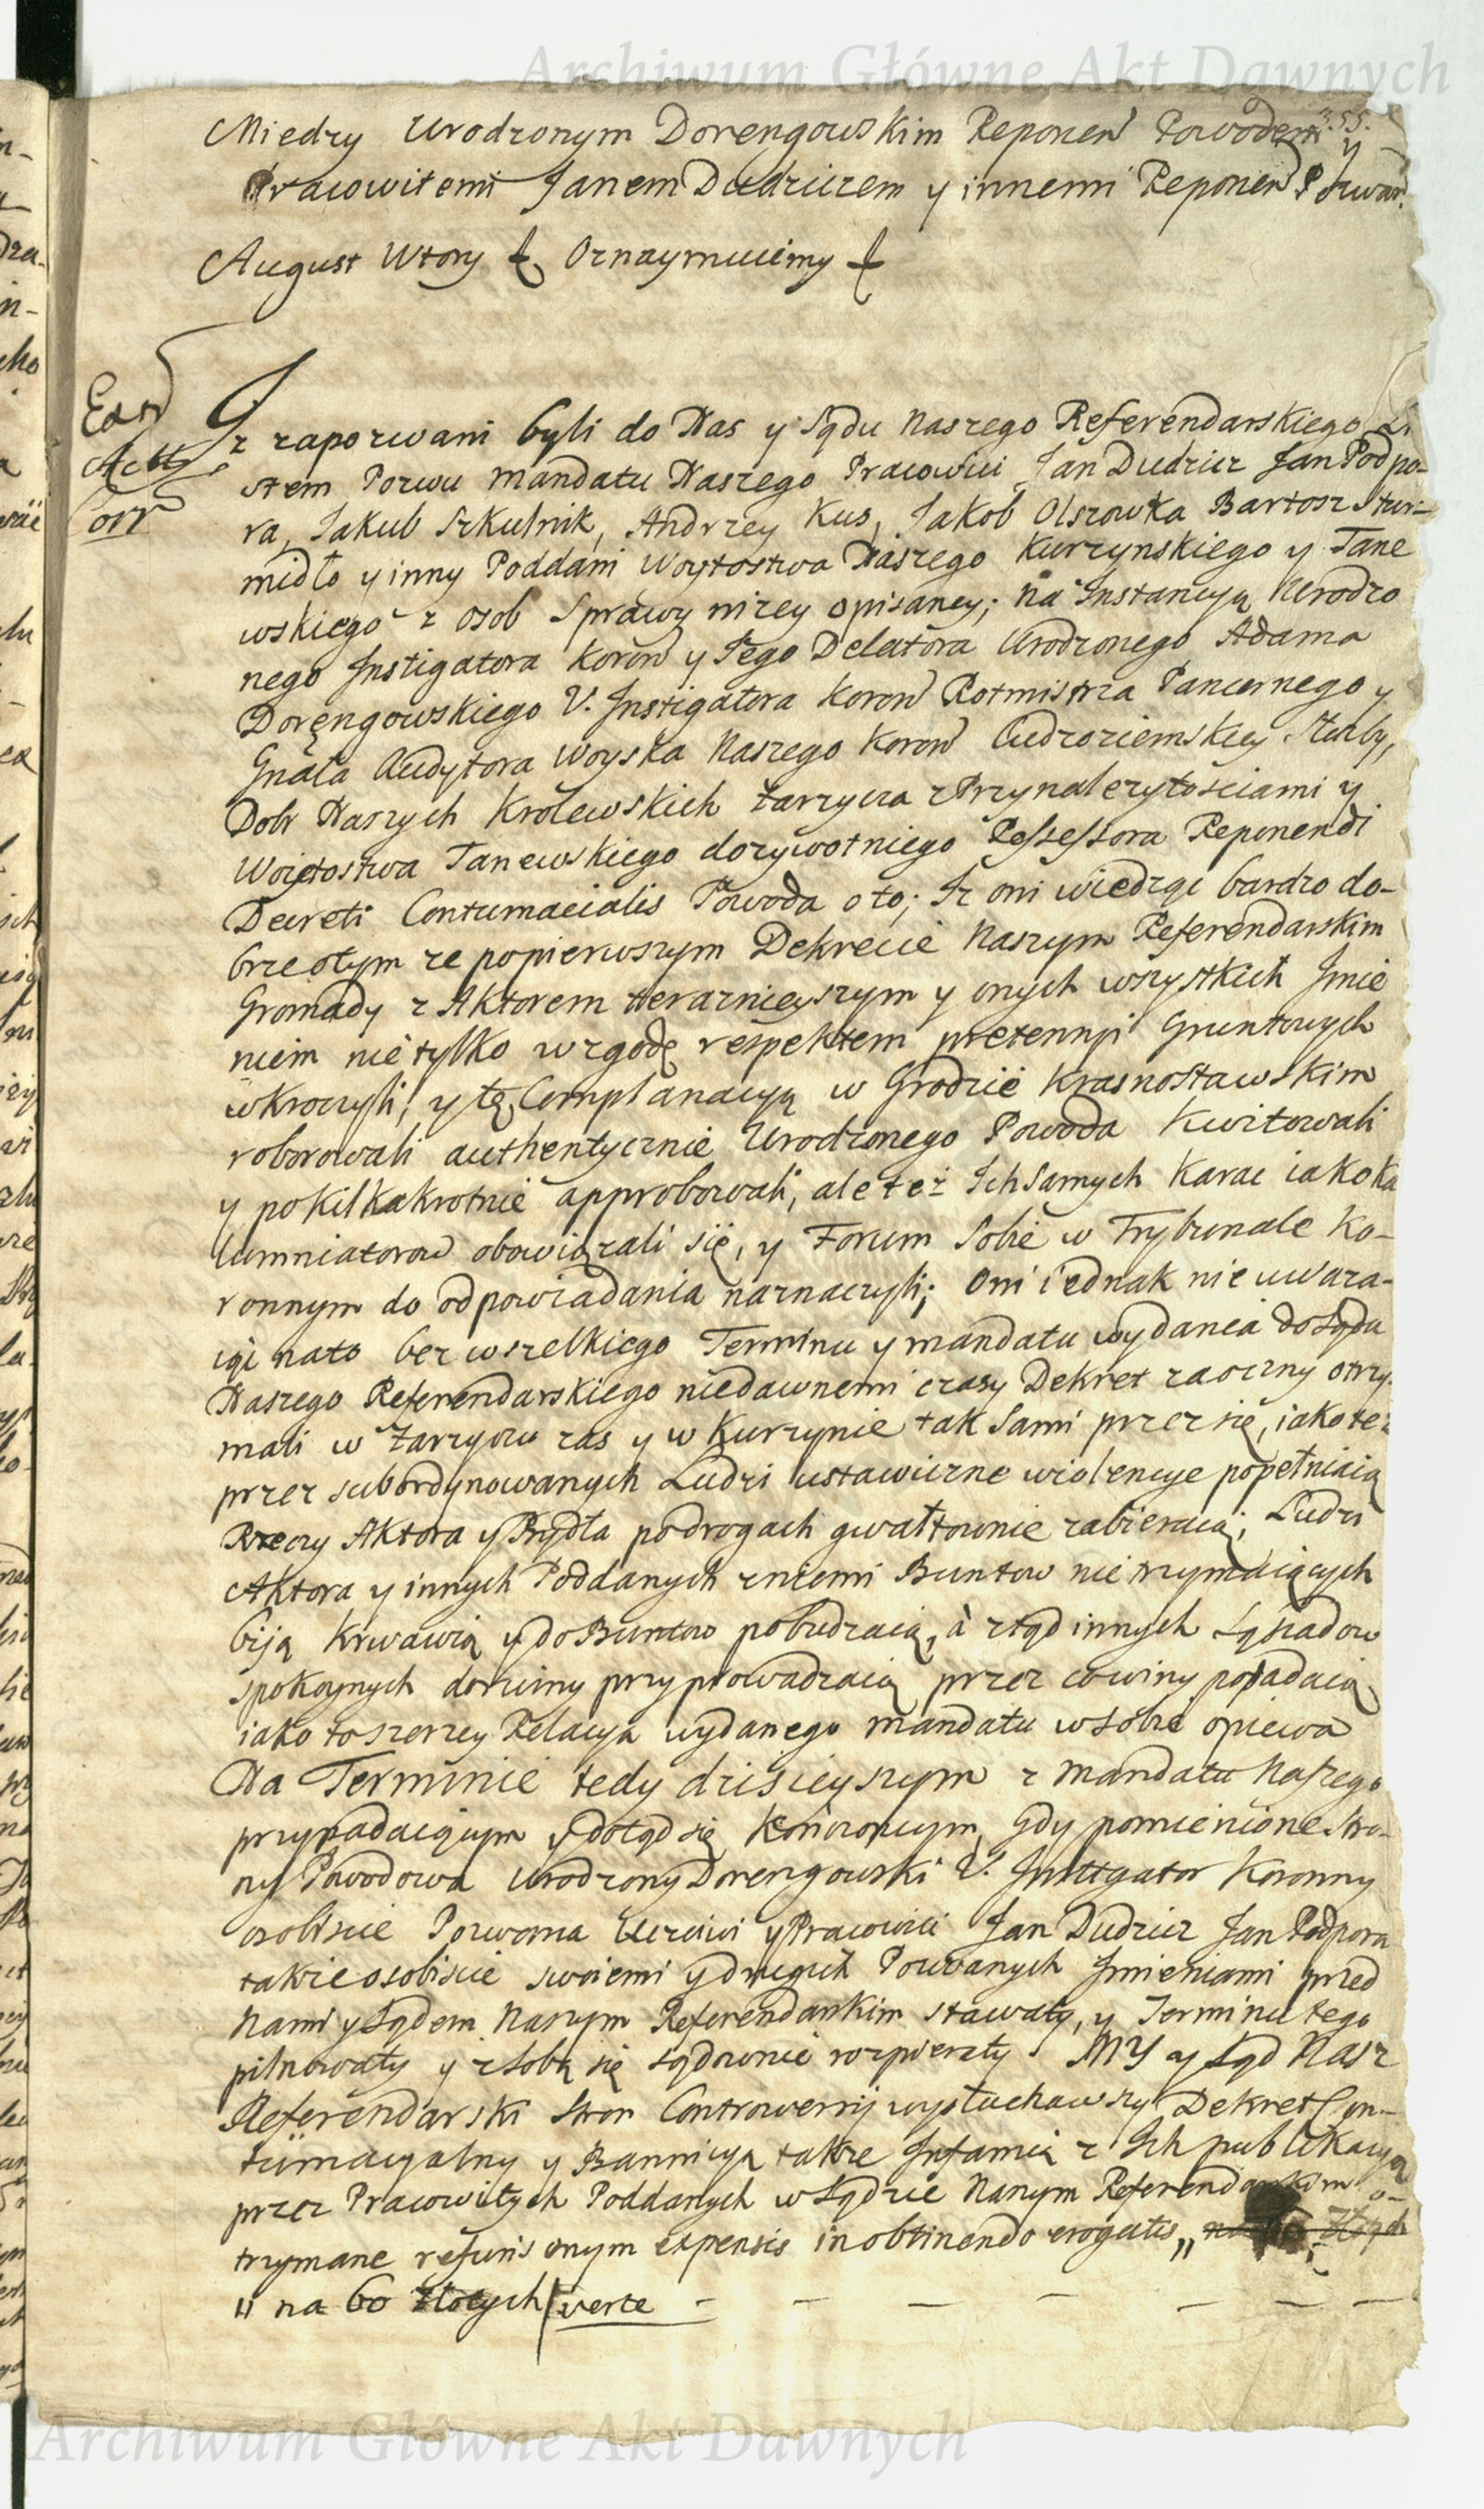 Archiwum Główne Akt Dawnych
355.
Miedzy Urodzonym Dorengowskim Reponen Powodem y
Pracowitemi Janem Dudzicem y innemi Reponen Pozwan.
August Wtory Oznaymuiemy
Exnd
Actt
Corr
Iz zapozwani byli do Nas y Sądu Naszego Referendarskiego Li-
stem Pozwu Mandatu Naszego Pracowici Jan Dudzicz Jan Podpo-
ra, Jakub Szkulnik, Andrzey Kus, Jakob Olszowka Bartosz Stur-
midło y inny Poddani Woytostwa Naszego Kurzynskiego y Tane
wskiego z osob Sprawy nizey opisaney; na Instancyą Urodzo
nego Instigatora Koron y Jego Delatora Urodzonego Adama
Doręngowskiego V. Instigatora Koron Rotmistrza Pancernego y
Gnała Audytora Woyska Naszego Koron Cudzoziemskiey Służby,
Dobr Naszych Krolewskich Zarzycza z Przynalezytościami y
Woijtostwa Tanewskiego dozywotniego Possessora Reponendi
Decreti Contumacialis Powoda o to; Iz oni wiedząc bardzo do-
brze otym ze popierwszym Dekrecie Naszym Referendarskim
Gromady z Aktorem terazniejszym y onych wszystkich Imie
niem nie tylko wzgodę respektem pretensyi Gruntowych
wkroczyli, y tę Complanacyą w Grodzie Krasnostawskim
roborowali authentycznie Urodzonego Powoda Kwitowali
y pokilkakrotnie approbowali, ale też Ich Samych Karac iako Ka
lumniatorow obowiązali się, y Forum Sobie w Trybunale Ko-
ronnym do odpowiadania naznaczyli; Oni iednak nie uwaza-
iąc nato bez wszelkiego Terminu y mandatu wydania do Sądu
Naszego Referendarskiego niedawnemi czasy Dekret zaoczny otrzy-
mali w Zarzyczu zas y w Kurzynie tak Sami przez się, iako tez
przez subordynowanych Ludzi ustawiczne wiolencye popełniaią
Rzeczy Aktora y Bydła podrogach gwałtownie zabieraią; Ludzi
Aktora y innych Poddanych zniemi Buntow nie trzymaiących
biją krwawią y do Buntow pobudzaią, à ztąd innych Sąsiadow
spokoynych doruiny przyprowadzaią przez co winy popadaią
iako to szerzey Relacya wydanego mandatu w sobie opiewa
Na Terminie tedy dzisieyszym z Mandatu Naszego
przypadaiącym y dotąd się Kończącym, Gdy pomienione Stro-
ny Powodowa Urodzony Dorengowski V. Instigator Koronny
osobiscie Pozwana Uczciwi y Pracowici Jan Dudzicz Jan Podpora
takze osobiscie swoiemi y drugich Pozwanych Imieniami przed
Nami y Sądem Naszym Referendarskim stawały, y Terminu tego
pilnowały y z Sobą się sądownie rozpierały. MY y Sąd Nasz
Referendarski Stron Controwersij wysłuchawszy Dekret Con-
tumacyalny y Bannicyą takze Infamią z Ich publikacyą
przez Pracowitych Poddanych w Sądzie Naszym Referendarskim o-
trzymane refusis onym expensis in obtinendo erogatis,,
,, na 60 złotych verte
Archiwum Główne Akt Dawnych